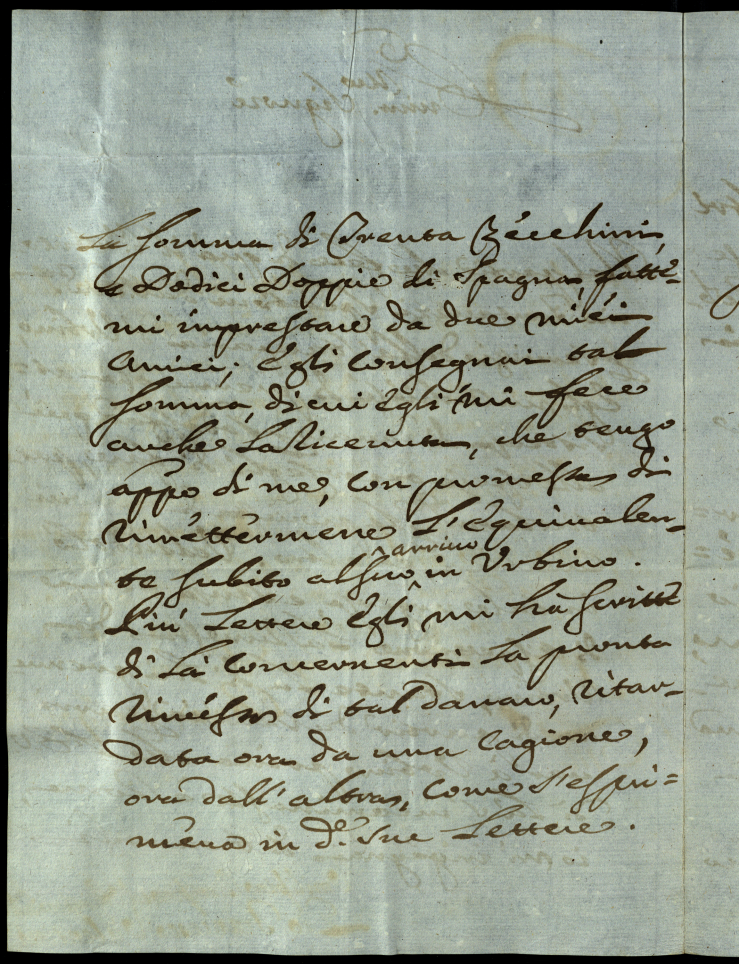 La somma di Trenta Zécchini,
e Dodici Doppie di Spagna, fatte=
mi imprestare da due miéi
Amici; Egli consegnai tal
somma, di cui Egli mi fece
anche La Ricevuta, che tengo
appo di me, con promessa di
rimettermene L'Equivalen-
te subito al suo arrivo in Urbino.
Piú Lettere Egli mi há scritte
di Lá concernenti La pronta
riméssa di tal danaro, ritar-
data ora da una Cagione,
ora dall'altra, come s'espri=
méva in d.e sue Lettere.